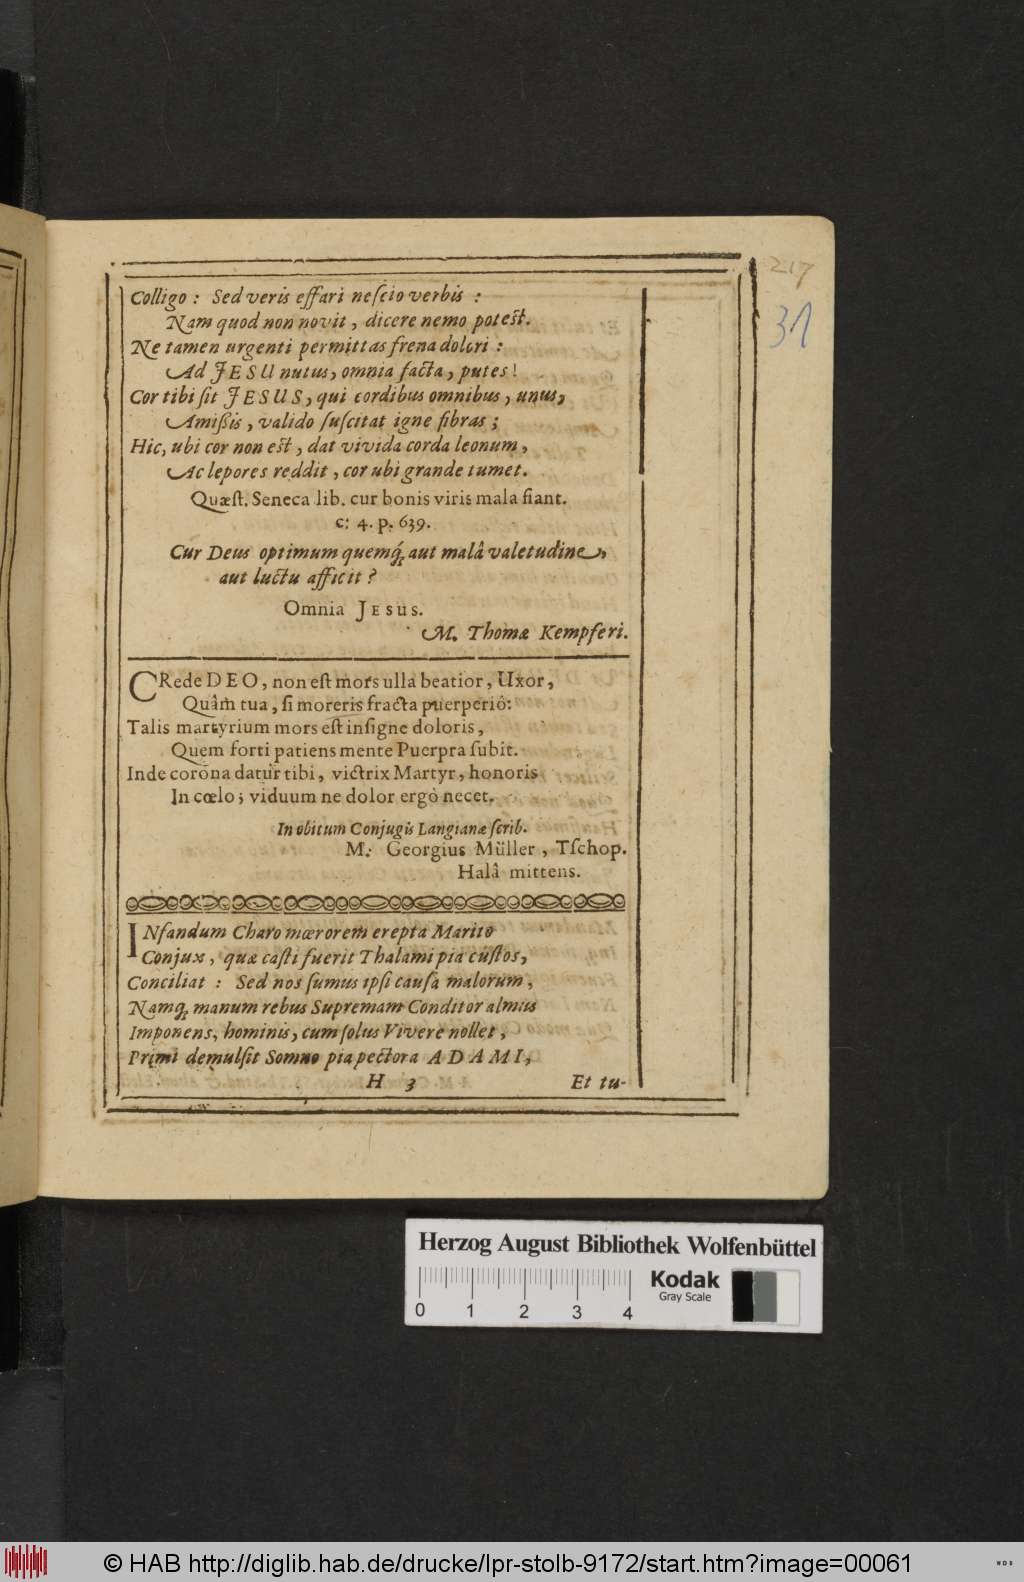 217
31
Colligo : Sed veris effari neſcio verbis :
Nam quod non novit, dicere nemo poteſt.
Ne tamen urgenti permittas frena dolori :
Ad JESU nutus, omnia facta, putes!
Cor tibi ſit JESUS, qui cordibus omnibus, unus,
Amiſsis, valido ſuſcitat igne fibras ;
Hic, ubi cor non eſt, dat vivida corda leonum,
Ac lepores reddit, cor ubi grande tumet.
Quæſt. Seneca lib. cur bonis viris mala fiant.
c: 4. p. 639.
Cur Deus optimum quemq́; aut malâ valetudine,
aut luctu afficit ?
Omnia JESUS.
M. Thomæ Kempferi.
CRede DEO, non eſt mors ulla beatior, Uxor,
Quâm tua, ſi moreris fracta puerperiô:
Talis martyrium mors eſt inſigne doloris,
Quem forti patiens mente Puerpra ſubit.
Inde corona datur tibi, victrix Martyr, honoris
In cœlo; viduum ne dolor ergò necet.
In obitum Conjugis Langianæ ſcrib.
M. Georgius Müller, Tſchop.
Halâ mittens.
INfandum Charo mœrorem erepta Marito
Conjux, quæ caſti fuerit Thalami pia cuſtos,
Conciliat : Sed nos ſumus ipſi cauſa malorum,
Namq; manum rebus Supremam Conditor almus
Imponens, hominis, cum ſolus Vivere nollet,
Primi demulſit Somno pia pectora ADAMI,
H 3 Et tu-
Herzog August Bibliothek Wolfenbüttel
0 1 2 3 4
Kodak
Gray Scale
© HAB http://diglib.hab.de/drucke/lpr-stolb-9172/start.htm?image=00061
WDB